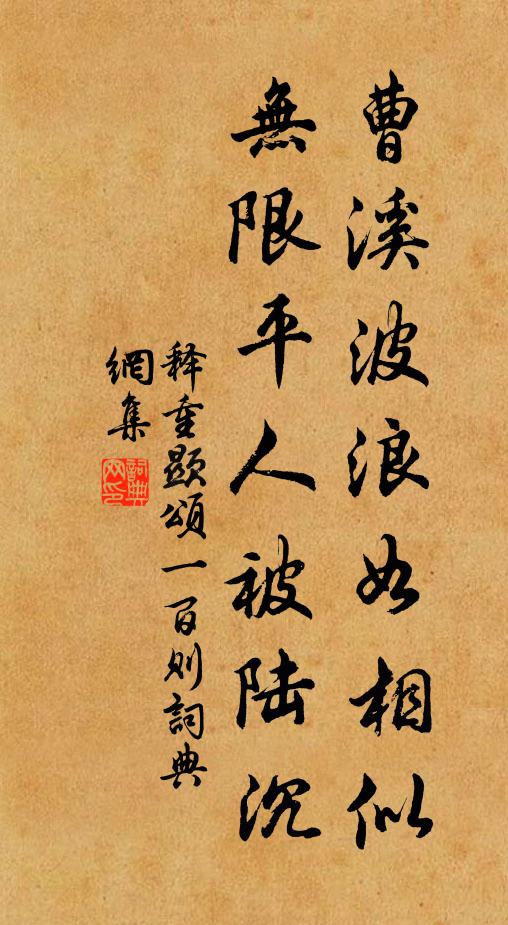 曹溪波浪如相似
無限平人被陸沉
释重顯頌一百則詞典
網集
詞典
网印